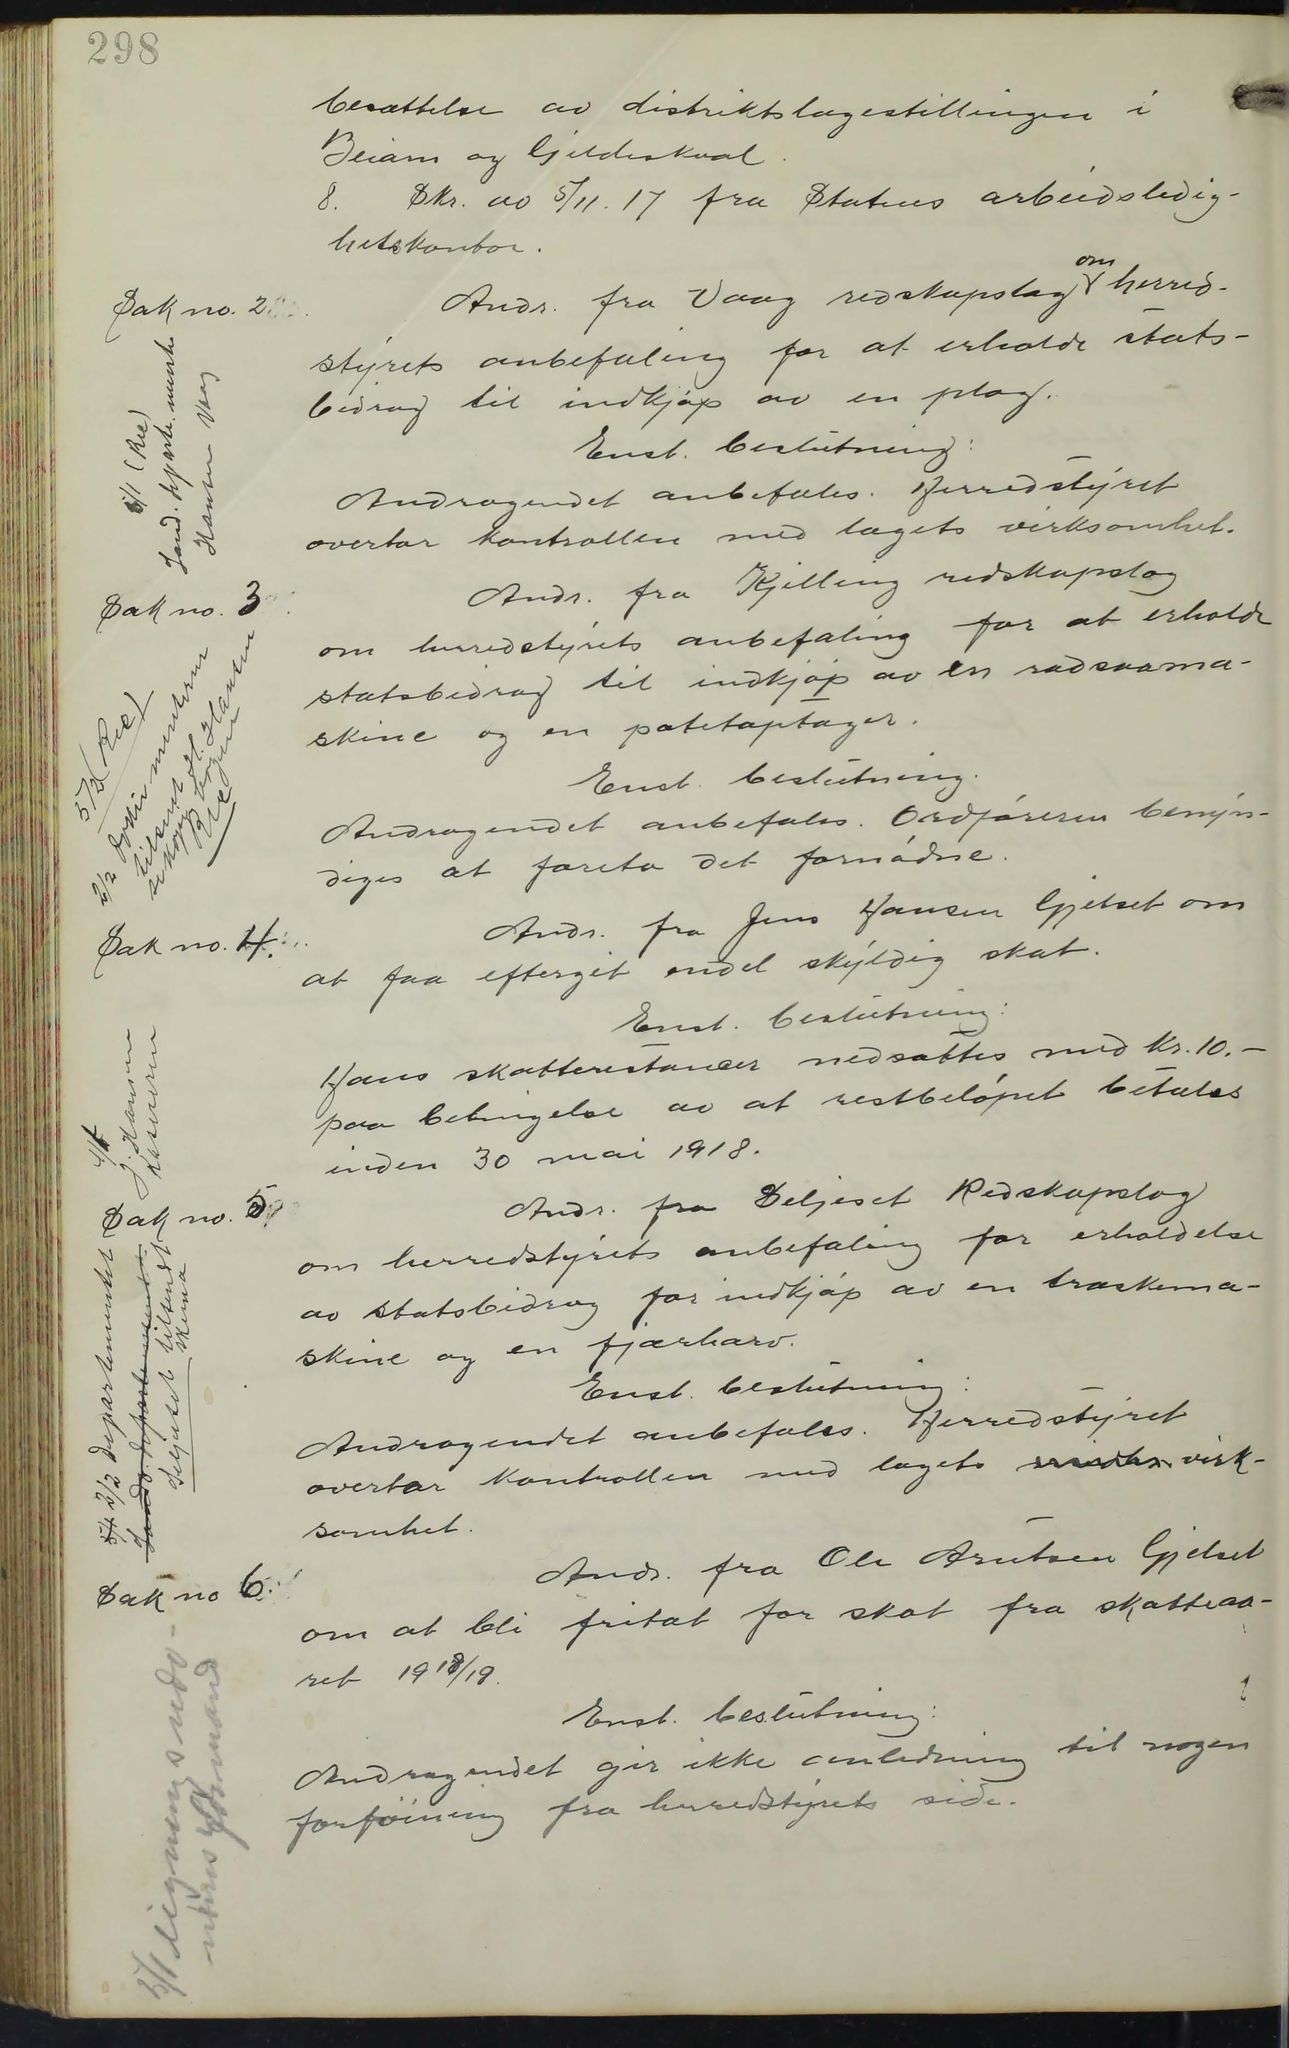 298
besættelse av distriktslægestillingen i
Beiarn og Gjeldeskaal.
8. Skr. av 5/11.17 fra Statens arbeidsledig-
hetskontor.
Sak no. 2
Andr. fra Vaag redskapslag om herred-
styrets anbefaling for at erholde stats-
bidrag til indkjøp av en plog.
Enst. beslutning:
Andragendet anbefales. Herredstyret
overtar kontrollen med lagets virksomhet.
5/1 (Ree)
Land. departementet
Hansen Vaag
Sak no. 3
Andr. fra Kjelling redskapslag
om herredstyrets anbefaling for at erholde
statsbidrag til indkjøp av en radsaama-
skine og en potetoptager.
Enst. beslutning.
Andragendet anbefales. Ordføreren bemyn-
diges at foreta det fornødne.
5/2 Ree)
2/2 dokumenterne
tilsendt H. Hansen
se kopiboken
Ree
Sak no. 4.
Andr. fra Jens Hansen Gjelset om
at faa eftergit endel skyldig skat.
Enst. beslutning:
Hans skatterestancer nedsættes med kr. 10.-
paa betingelse av at restbeløpet betales
inden 30 mai 1918.
J. Hansen
kasseren
Sak no. 5
Andr. fra Seljeset Redskapslag
om herredstyrets anbefaling for erholdelse
av statsbidrag for indkjøp av en træskema-
skine og en fjærharv.
Enst. beslutning:
Andragendet anbefales. Herredstyret
overtar kontrollen med lagets virk-
somhet.
5/1 2/2 departementet
Landb. departementet
Seljeset tilsendt
skema
Sak no 6.
Andr. fra Ole Arntsen Gjelset
om at bli fritat for skat fra skatteaa-
ret 1918/19.
Enst. beslutning:
Andragendet gir ikke anledning til nogen
forføining fra herredstyrets side.
5/1 ligningsned-
nævns formand